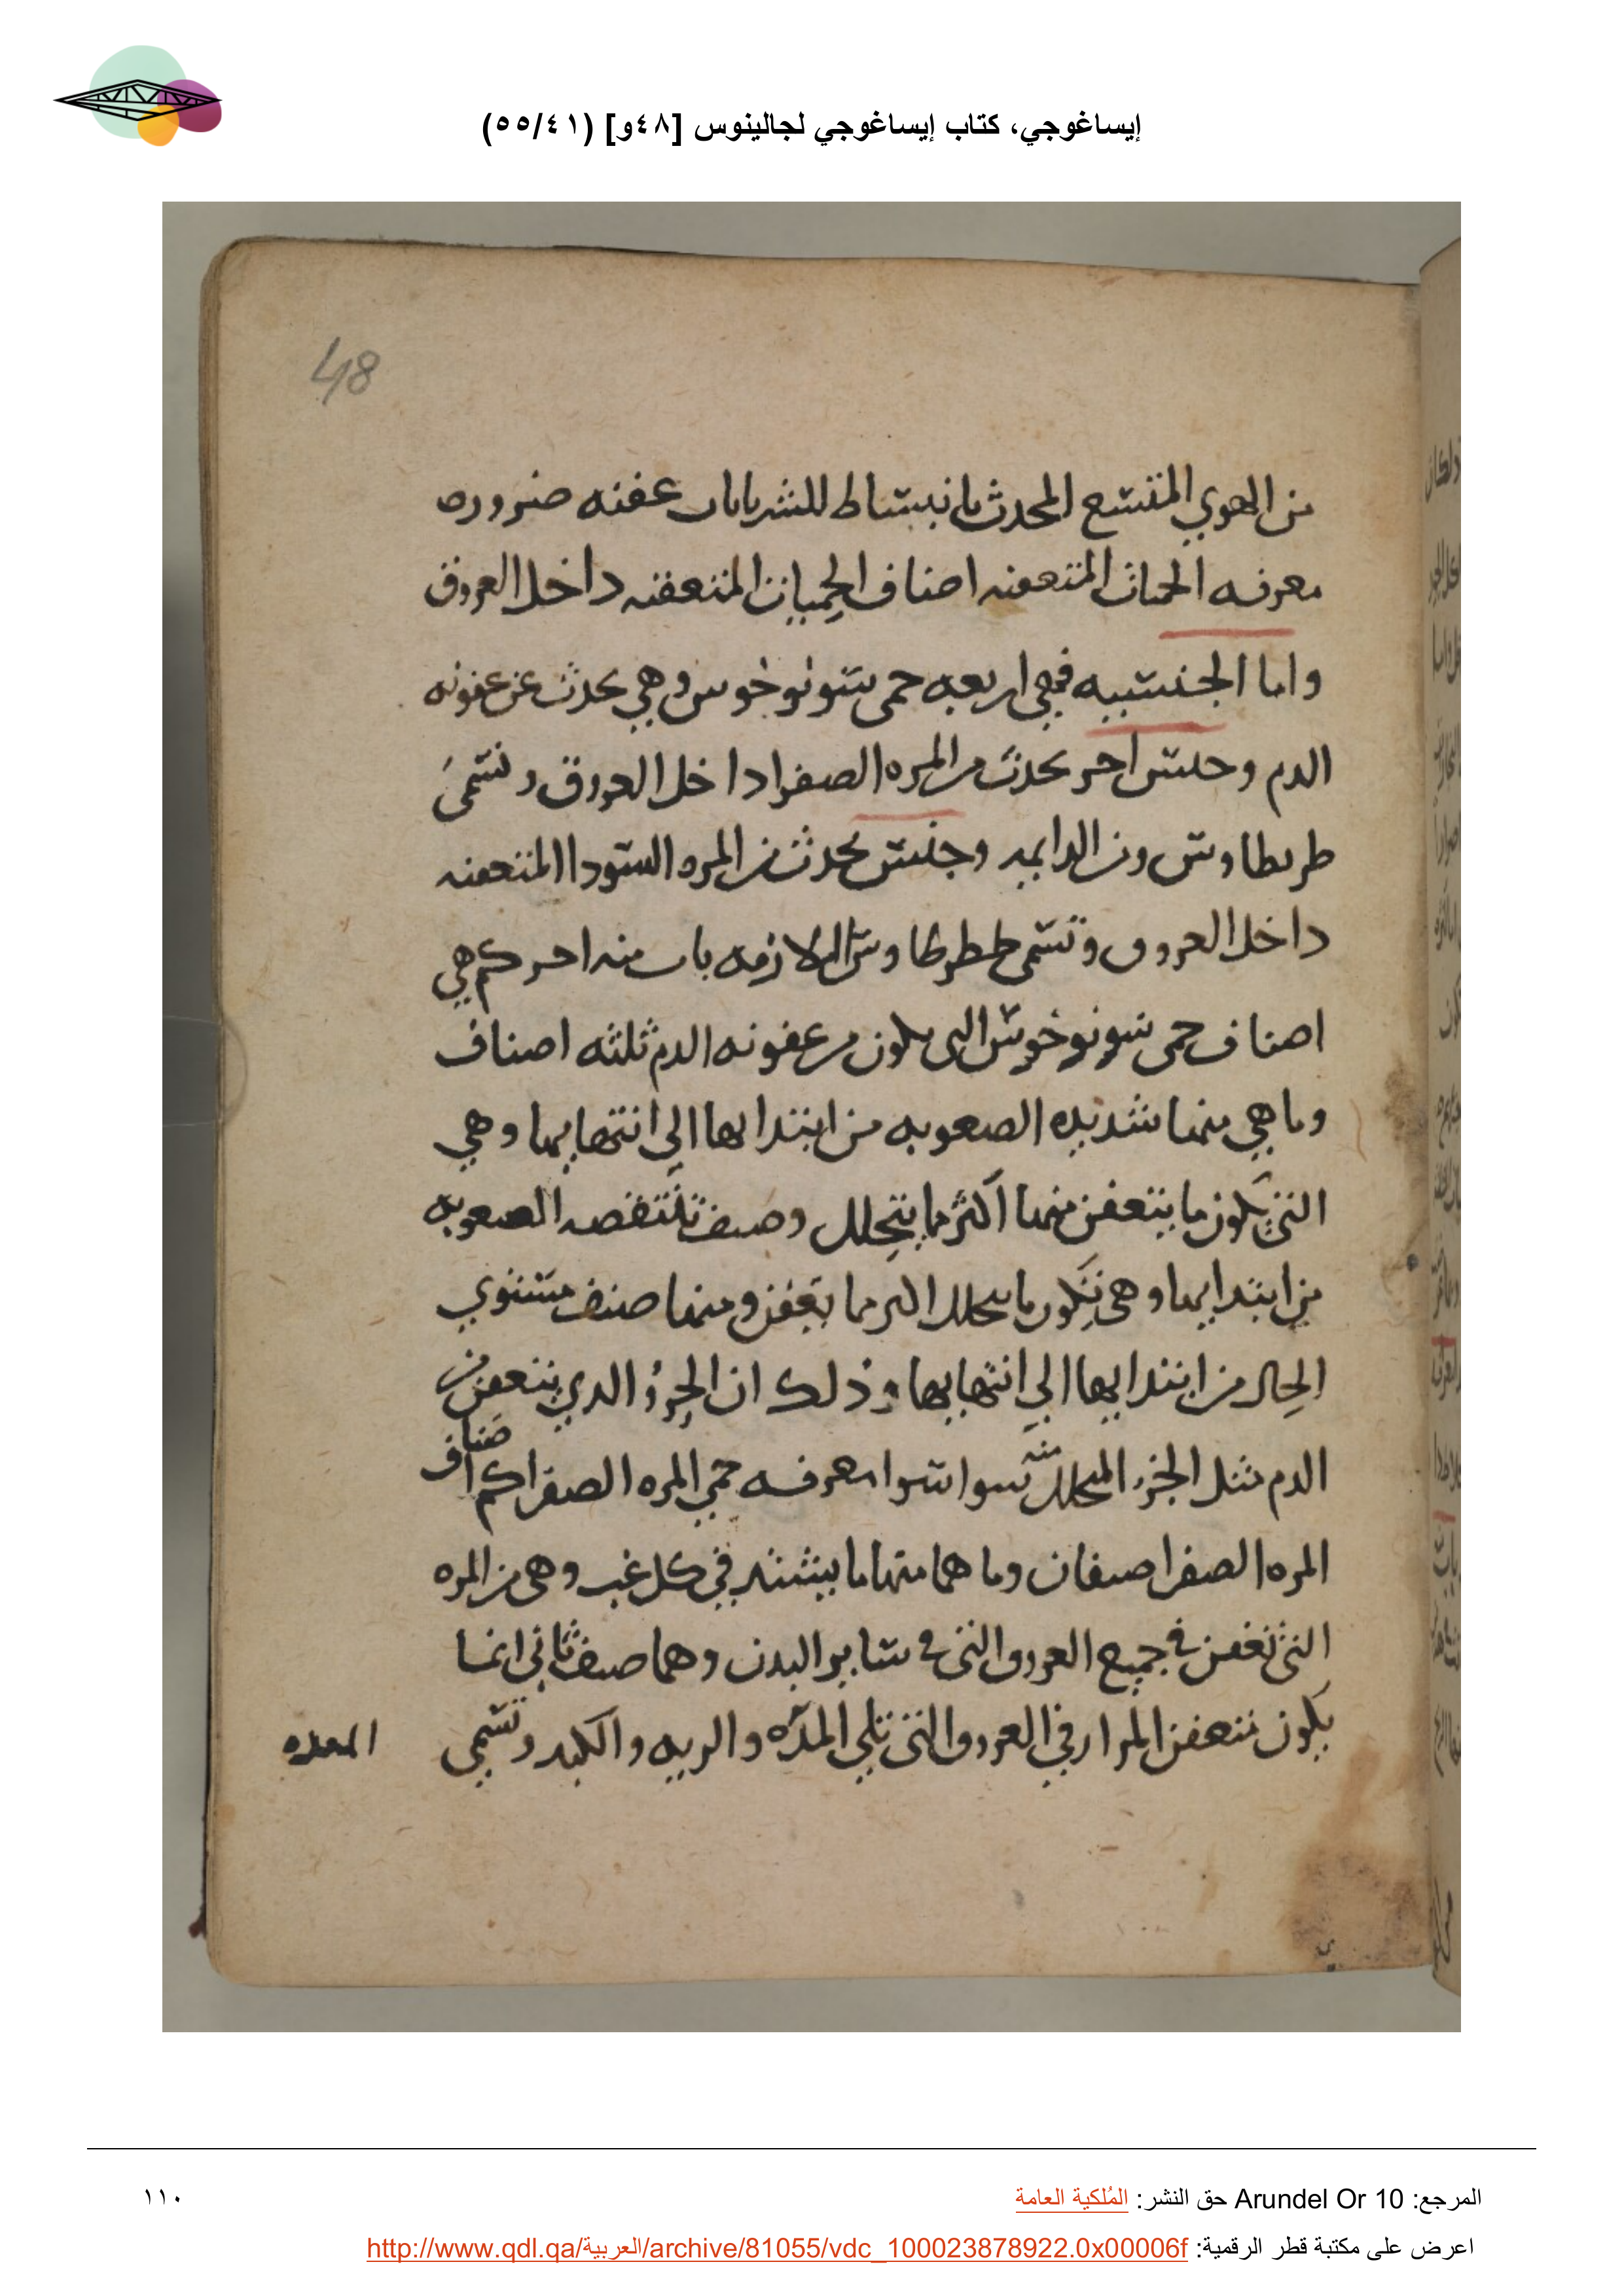 إيساغوجي، كتاب إيساغوجي لجالينوس [٤٨و] (٥٥/٤١)
48
من الهوي المتسع المحدث بانبساط للشريانات عفنه ضروره
معرفه الحميات المتعفنه اصناف الحميات المتعفنه داخل العروق
واما الجنسيه فهي اربعه حمى سونوخوس وهي تحدث عن عفونه
الدم وجنس اخر يحدث من المره الصفرا داخل العروق وتسمى
طريطاوس ون الدايمه وجنس يحدث من المره السودا المتعفنه
داخل العروق وتسمى طرطاوس اللازمه باب منه اخر كم هي
اصناف حمى سونوخوس التي تكون من عفونه الدم ثلثه اصناف
وما هي منها شديده الصعوبه من ابتدايها الى انتهايها وهي
التي يكون ما يتعفن منها اكثر مما يتحلل وصنف تنتقصه الصعوبه
من ابتدايها وهى تكون ما يتحلل اكثر مما يعفن ومنها صنف مستوي
الحال من ابتدايها الي انتهايها وذلك ان الجزؤ الدي يتعفن من
الدم مثل الجزء المتحلل منه سوا سوا معرفه حمي المره الصفرا كم اصناف
المره الصفرا صنفان وما هما منها ما يشتد في كل غب وهى من المره
التي تعفن في جميع العروق التي في ساير البدن وهما صنف ثاني انما
يكون تتعفن المرار في العروق التي تلي المده والريه والكبد وتسمي
المعده
المرجع: Arundel Or 10 حق النشر: المُلكية العامة
١١٠
اعرض على مكتبة قطر الرقمية: http://www.qdl.qa/العربية/archive/81055/vdc_100023878922.0x00006f